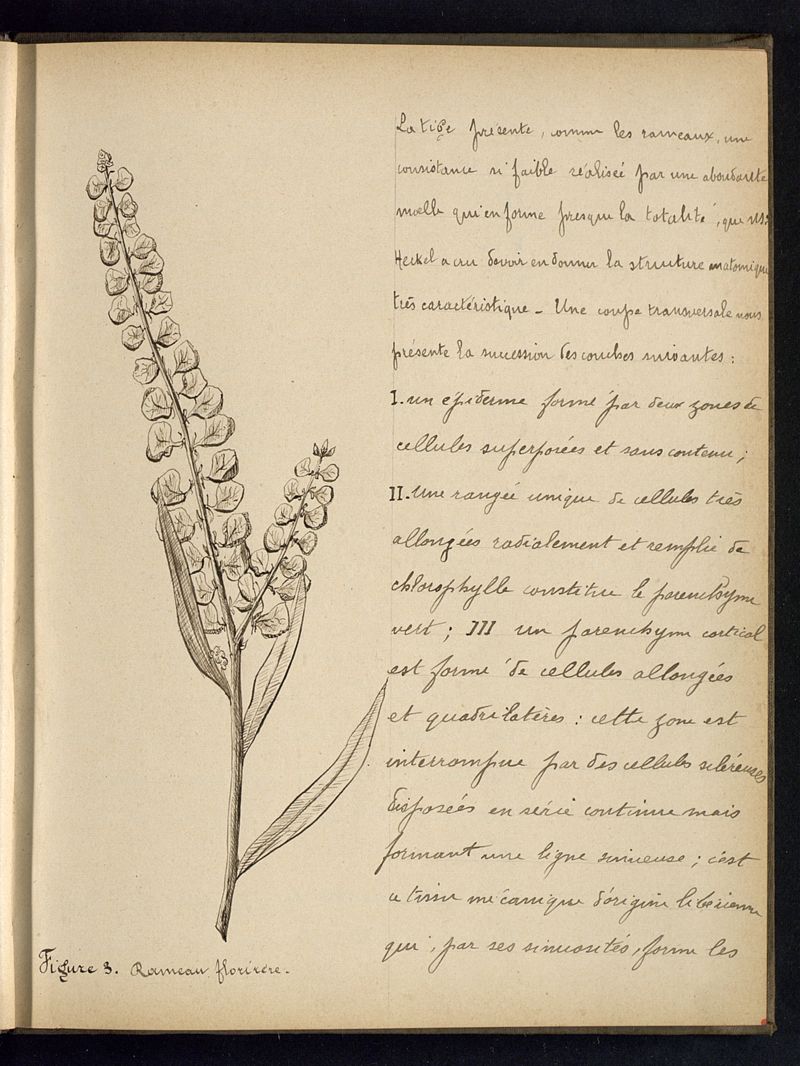 La tige présente, comme les rameaux, une
consistance si faible réalisée par une abondante
moelle qui en forme presque la totalité, que Mr
Heckel a cru devoir en donner la structure anatomique
très caractéristique _ Une coupe transversale nous
présente la succession des couches suivantes :
I. un épiderme formé par deux zones de
cellules superposées et sans contenu ;
II. Une rangée unique de cellules très
allongées radialement et remplie de
chlorophylle constitue le parenchyme
vert ; III un parenchyme cortical
est formé de cellules allongées
et quadrilatères : cette zone est
interrompue par des cellules scléreuses
disposées en série continue mais
formant une ligne sinueuse ; c'est
ce tissu mécanique d'origine libérienne
qui, par ses sinuosités, forme les
Figure 3. Rameau florifère.